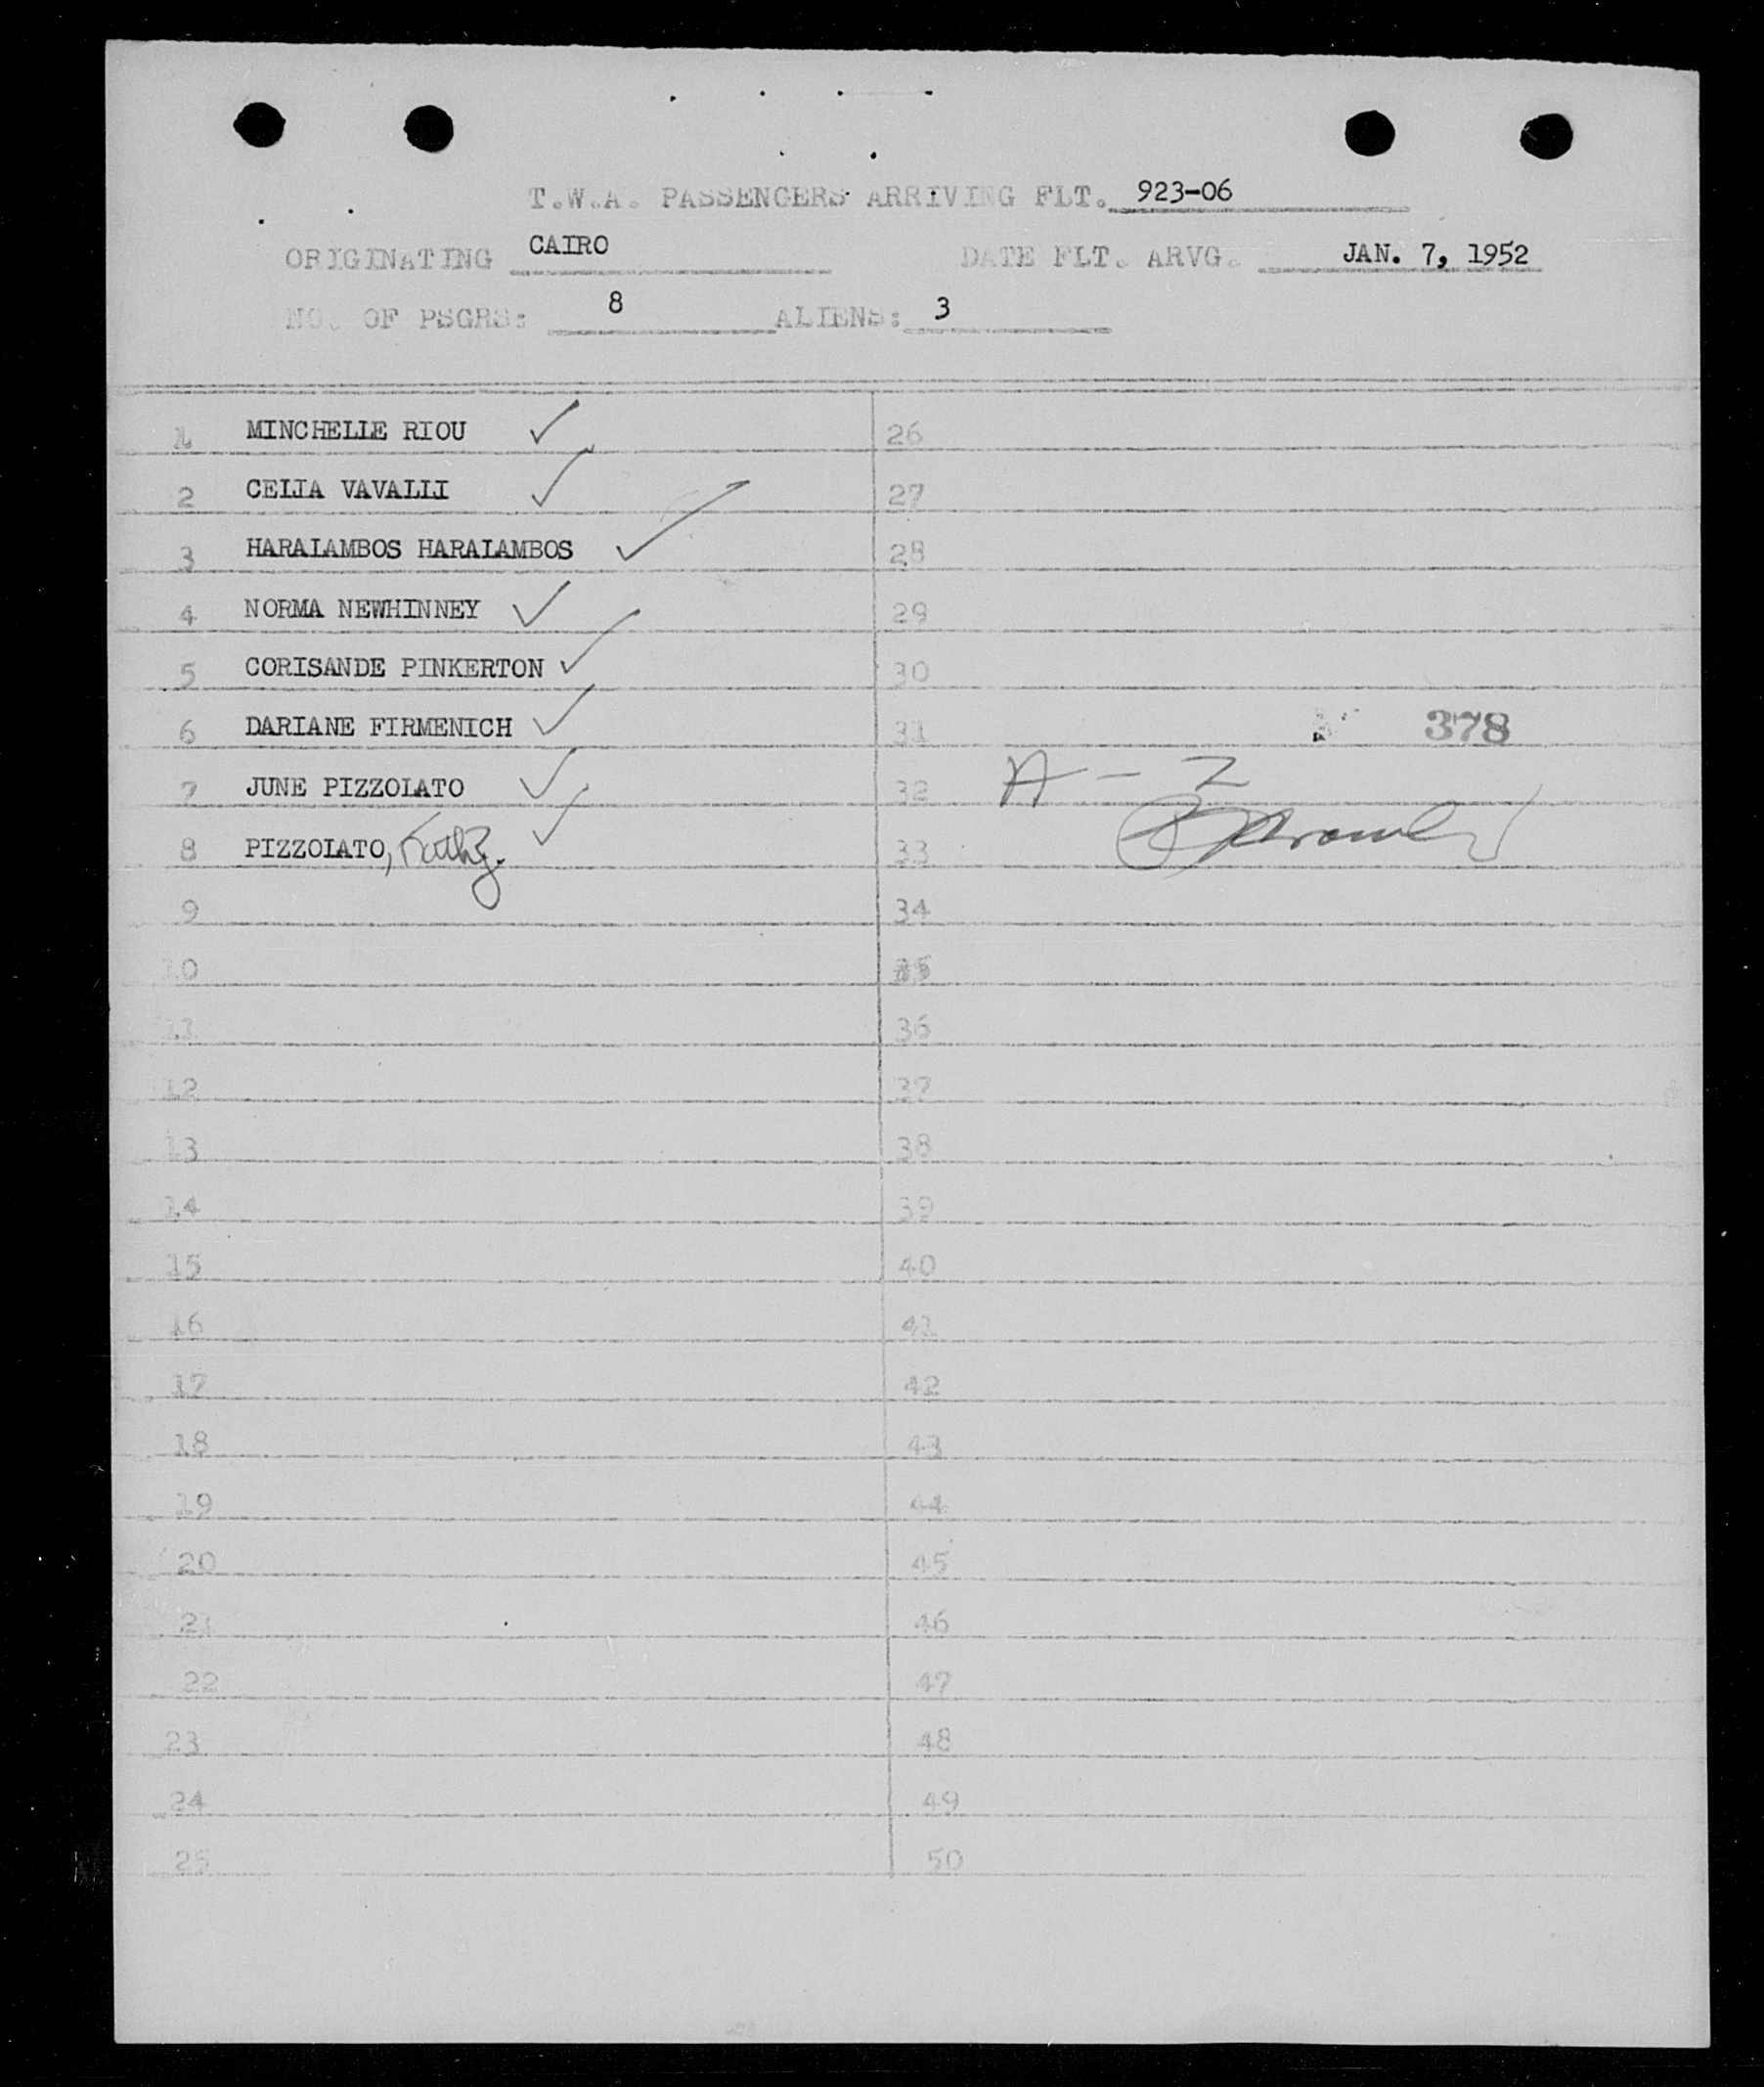 T.W.A. PASSENGERS ARRIVING FLT. 923-06
ORIGINATING CAIRO DATE FLT. ARVG. JAN. 7, 1952
NO. OF PSGRS: 8 ALIENS: 3
1 MINCHELLE RIOU ✓ 26
2 CELIA VAVALLI ✓ 27
3 HARALAMBOS HARALAMBOS ✓ 28
4 NORMA NEWHINNEY ✓ 29
5 CORISANDE PINKERTON ✓ 30
6 DARIANE FIRMENICH ✓ 31 378
7 JUNE PIZZOLATO ✓ 32 A - 2
8 PIZZOLATO, Kathy. ✓ 33
9 34
10 35
11 36
12 37
13 38
14 39
15 40
16 41
17 42
18 43
19 44
20 45
21 46
22 47
23 48
24 49
25 50